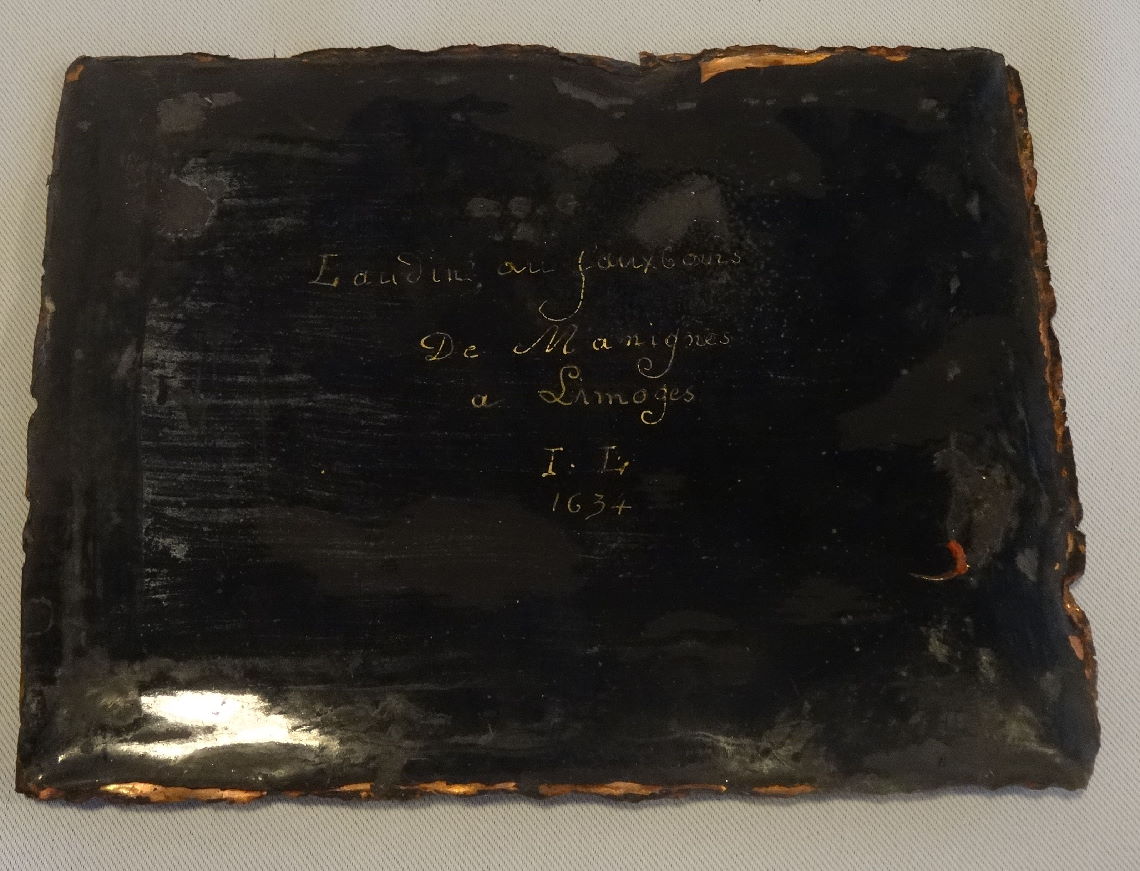 Laudin, au fauxbours
De Manignes
a Limoges
I. L
1634